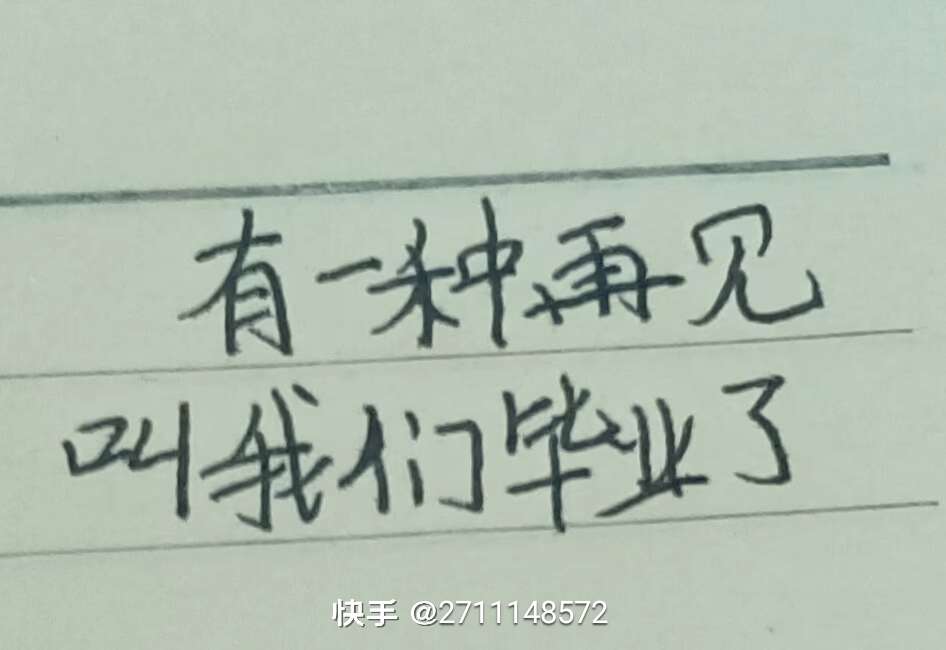 有一种再见
叫我们毕业了
快手 @2711148572